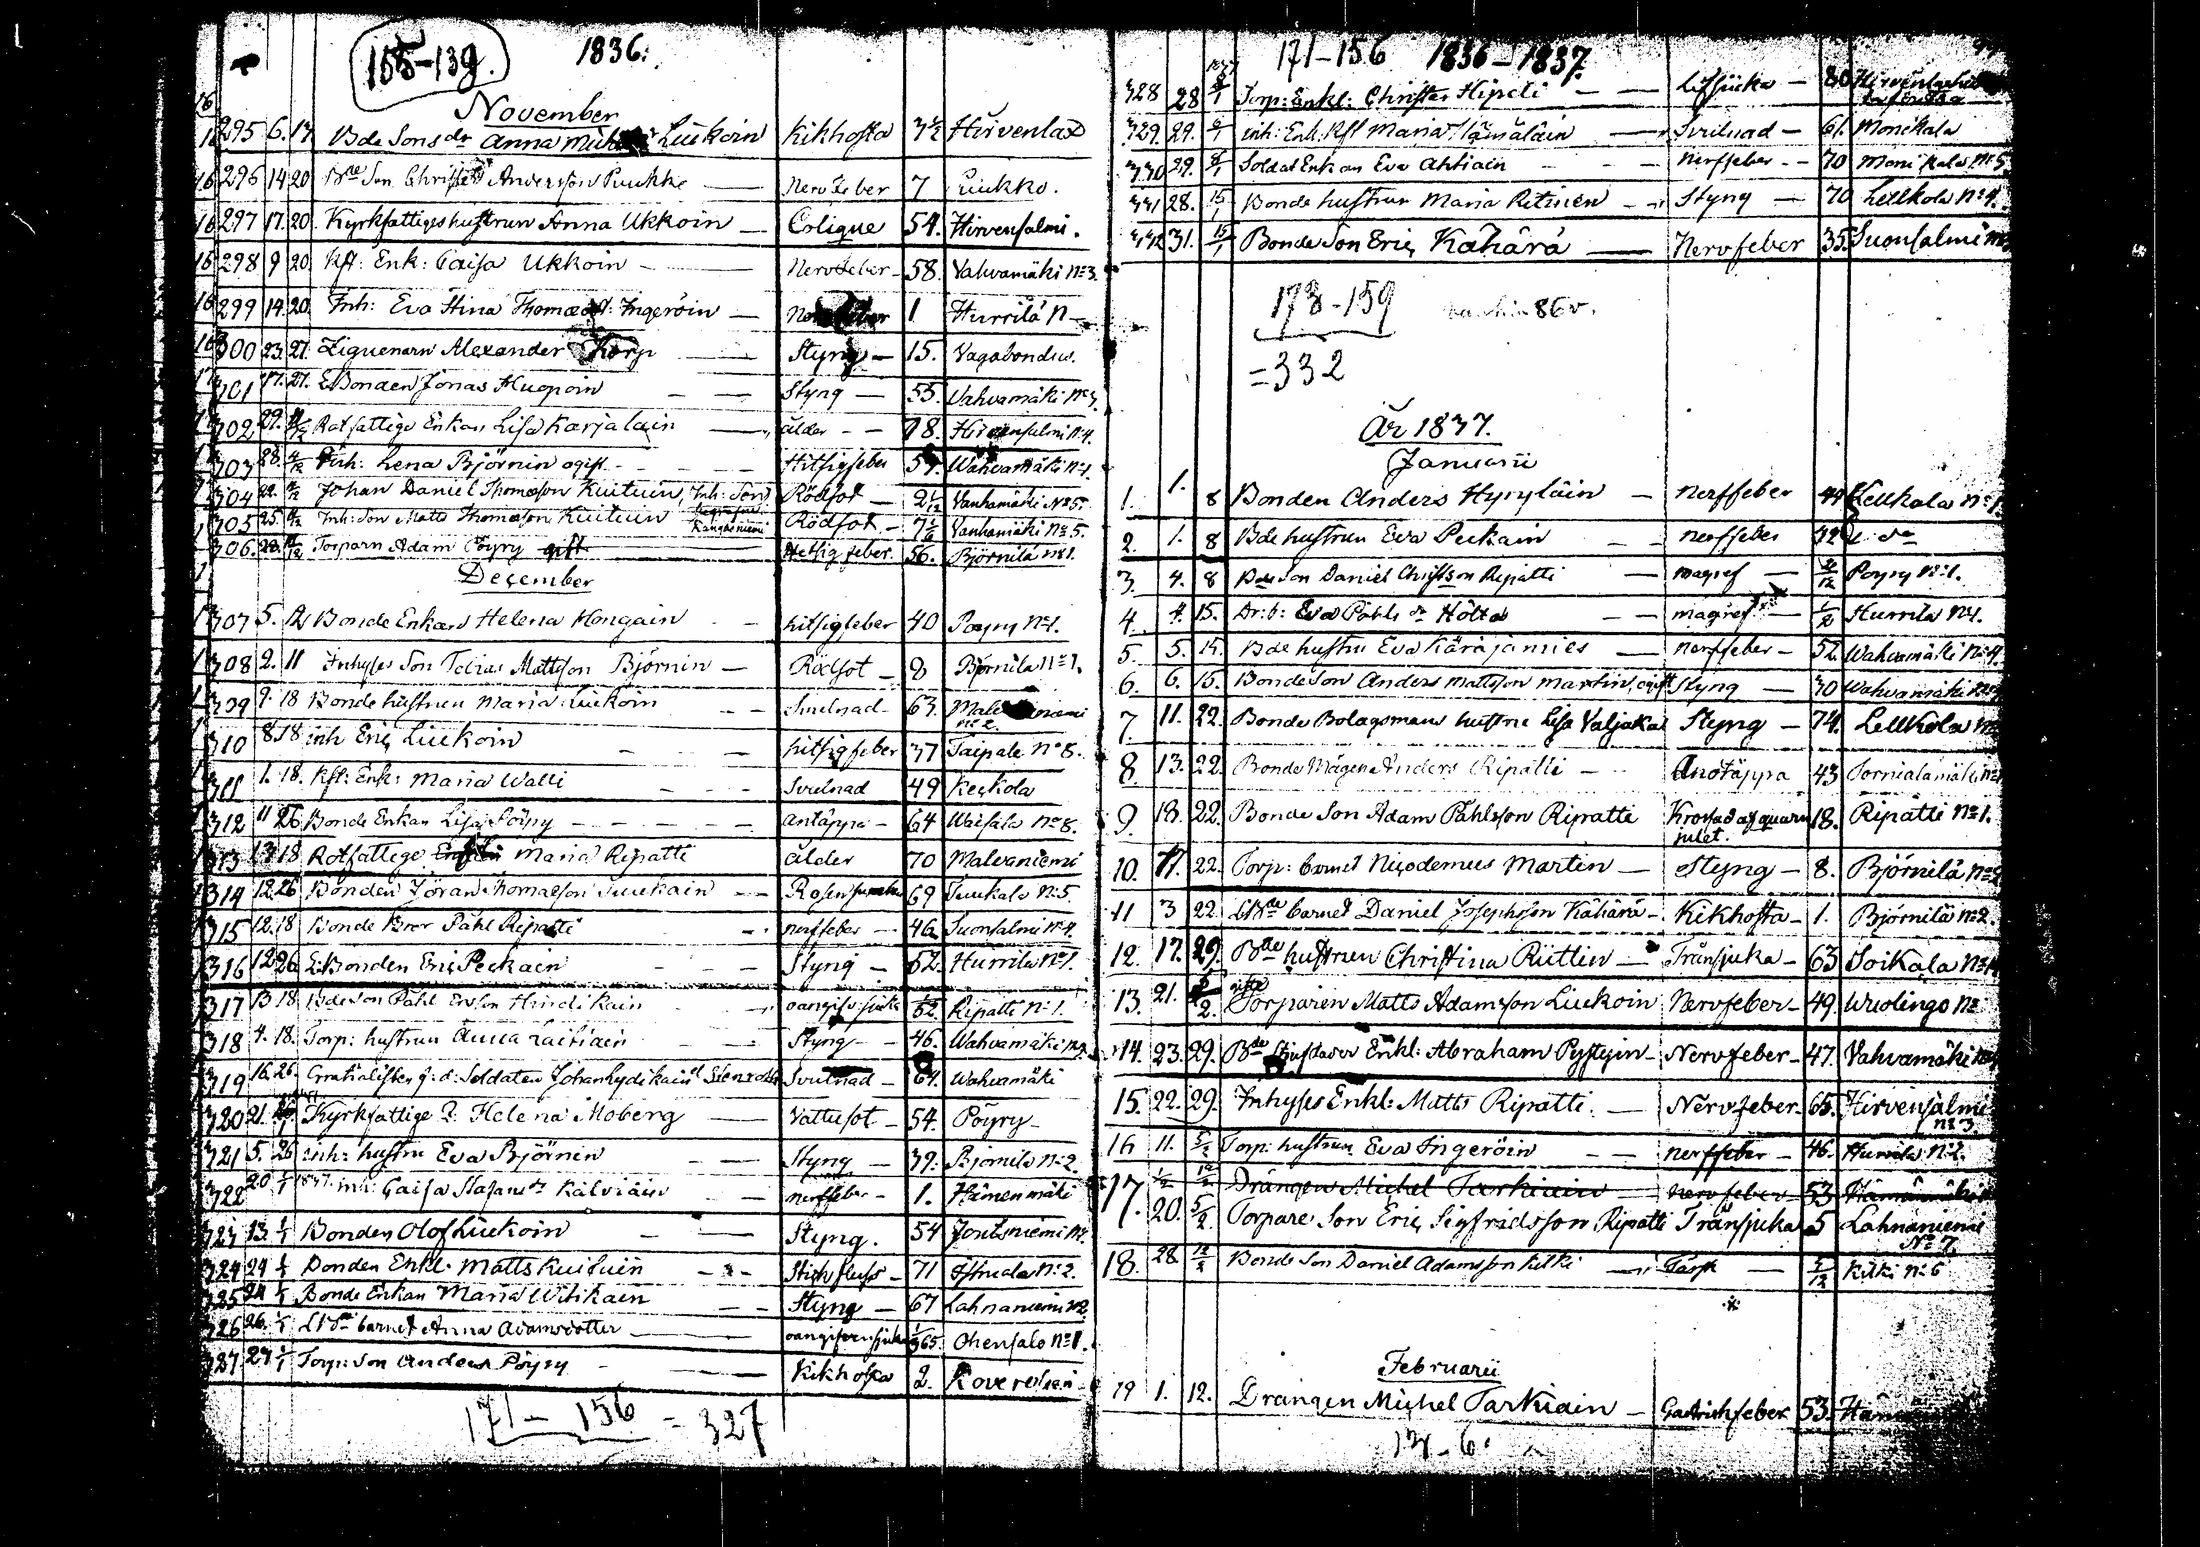 155-139. 1836.
November
295 6. 13 Bde Sons dr Anna Liukoin Kikhosta 3½ Hirvenlax
296 14 20 Bde Son Christer Andersson Puukko Nervfeber 7 Puukko.
297 17. 20. Kyrkfattiges hustrun Anna Ukkoin — Colique 54. Hirvensalmi.
298 9 20 Kft: Enk: Caisa Ukkoin — Nervfeber - 58. Vahvamäki No 3.
299 14. 20. Inh: Eva Stina Thomæ dr: Ingeröin — 1 Hurrila N
300 23. 27. Ziguenarn Alexander Korp — Styng — 15. Vagabond
301 17. 27. E Bonden Jonas Huopoin — Styng — 55. Vahvamäki No
302 29. Rotfattige Enkan Lisa Karjalain — ålder — 78. Hirvensalmi No 4.
303 28. 4/12 Inh: Lena Björnin ogift - Hitsigfeber Wahvamäki No 1.
304 22. Johan Daniel Thomasson Kuituin, Inh: Son Rödsot — 2 1/12 Vanhamäki No 5.
305 25. Inh: Son Matts Thomasson Kuituin Kangasniemi Rödsot — Vanhamäki No 5.
306. 28. Torparn Adam Pöyry gift Hetsig feber. 56. Björnilä No 1.
December
307 5. 11 Bonde Enkan Helena Hongain — hitsigfeber 40 Pöyry No 1.
308 2. 11 Inhyses Son Tobias Mattsson Björnin — Rödsot — 8 Björnila No 1.
309 9. 18 Bonde hustrun Maria Liukoin Svulnad 63. No 2.
310 8. 18 inh Eric Liukoin — hitsigfeber 37 Taipale No 8.
311 1. 18. Kft: Enk: Maria Walli — Svulnad 49 Keckola
312 11 26 Bonde Enkan Lisa Pöyry — andtäppa — 64 Waisala No 8.
313 13 18 Rotfattige Maria Ripatti ålder 70 Malvaniemi
314 12 26 Bonden Jöran Thomasson Tuukain — 69 Tuukala No 5.
315 12. 18 Bonde Bror Påhl Ripatti nerffeber — 46. Suonsalmi No 4.
316 12 26 E. Bonden Eric Peckain — Styng — 62. Hurrila No 1.
317 13 18 Bde Son Påhl Ersson Hindikain — oangifv. sjukd 62. Ripatti No 1.
318 4. 18. Torp: hustrun Anna Laitiain — Styng — 46. Wahvamäki No
319 16. 26. Gratialisten f: d: Soldaten Johan Hydikain Svulnad — 64. Wahvamäki
320 21. Kyrkfattige P. Helena Moberg — Vattusot — 54. Pöyry —
321 5. 26 inh: hustru Eva Björnin — Styng — 39. Björnila No 2.
322 20 1/1 1837. inh: Caisa Stafans dr Kälviäin nerffeber — 1. Hämenmäki
323 13. 1/1 Bonden Olof Liukoin — Styng. 54 Joutsniemi No
324 24 1/1 Bonden Enkl: Matts Kuituin — Stickfluss — 71 No 2.
325 24 1/1 Bonde Enkan Maria Witikain — Styng — 67 Lahnaniemi No 2
326 26. 1/1 barnet Anna Adamsdotter — oangifven sjukd Ohensalo No 1.
327. 27 1/1 Torp: Son Anders Pöyry — Kikhosta 2. Koveroland
171 — 156 = 327
171-156 1836-1837.
328 28 8/1 Torp: Enkl: Christer Hijreti — — 80
329. 29. Inh: Enk: Kft Maria Hämäläin — Svulnad — 61. Monikala
330 29. Soldat Enkan Eva Ahtiain - - - nerffeber -- 70 Monikala No 5
331 28. 15/1 Bonde hustrun Maria Pitinen — Styng — 70 Lellkola No 4.
332 31. 15/1 Bonde Son Eric Kähärä — Nervfeber 35. Suonsalmi No
173-159 86 v.
=332
År 1837.
Januarii
1. 1. 8 Bonden Anders Hyryläin — nerffeber 44 Lellkola No 1.
2. 1. 8 Bde hustrun Eva Peckain — nerffeber 72
3. 4. 8 Bde Son Daniel Christsson Ripatti — magref — Pöyry No 1.
4. 4. 15. Dr: b: Eva Påhls dr Höltta magref Hurrila No 1.
5. 5. 15. Bde hustru Eva Käräjämies — nerffeber — 52. Wahvamäki No 4.
6. 6. 15. Bonde Son Anders Mattsson Martin, ogift Styng — 30 Wahvamäki No
7 11. 22. Bonde Bolagsmans hustru Lisa Valjakai Styng — 74. Lellkola No
8. 13. 22. Bonde Mågen Anders Ripatti — Andtäppa 43 Tornialamäki No
9. 18. 22. Bonde Son Adam Påhlsson Ripatti Krossad af quarn julet. 18. Ripatti No 1.
10. 17. 22. Torp: barnet Nicodemus Martin — Styng — 8. Björnilä No 2
11 3 22. barnet Daniel Josephsson Kähärä — Kikhosta — 1. Björnilä No 2.
12. 17. 29. Bde hustrun Christina Riitlin — Trånsjuka — 63 Soikala No
13. 21. 5/2. gifte Torparen Matts Adamsson Liukoin Nervfeber — 49. Wuolingo No
14. 23. 29. Bde Enkl: Abraham Pystyin — Nervfeber — 47. Vahvamäki No
15. 22. 29. Inhyses Enkl: Matts Ripatti. — Nervfeber. 65. Hirvensalmi No 3.
16 11. 5/2 Torp: hustrun Eva Ingeröin — nerffeber — 46. Hurrila No 2.
1/2 12/2 Drängen Michel Tarkiain — nervfeber — 53
17. 20. 5/2. Torpare Son Eric Sigfridsson Ripatti Trånsjuka 5 Lahnaniemi No 7.
18. 28. 12/2 Bonde Son Daniel Adamsson Kilki — Törsk — 5/12 Kilki No 6
Februarii
19 1. 12. Drängen Michel Tarkiain — Gastrichfeber 53.